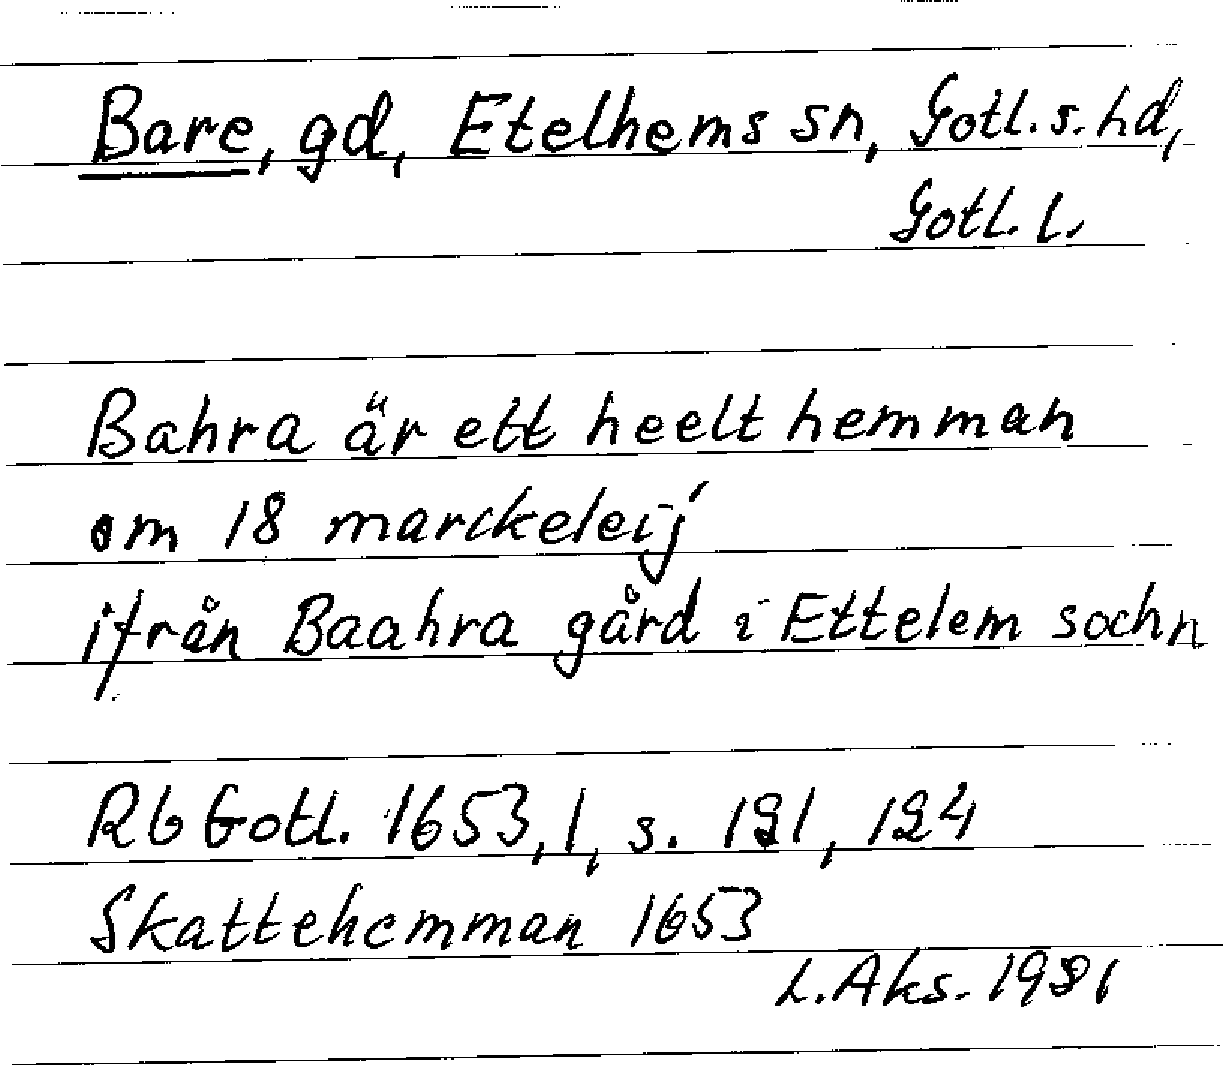 Bare, gd, Etelhems sn, Gotl. s. hd,
Gotl. l.
Bahra är ett heelt hemman
om 18 marckeleij
ifrån Baahra gård i Ettelem sochn
Rb Gotl. 1653, 1, s. 191, 194
Skattehemman 1653
L. Aks. 1981